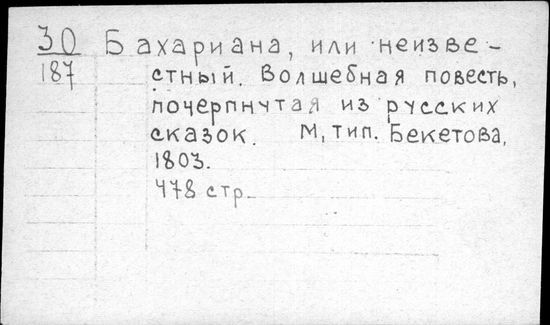 30 Бахариана, или неизве-
187 стный. Волшебная повесть,
почерпнутая из русских
сказок. М, тип. Бекетова,
1803.
478 стр.